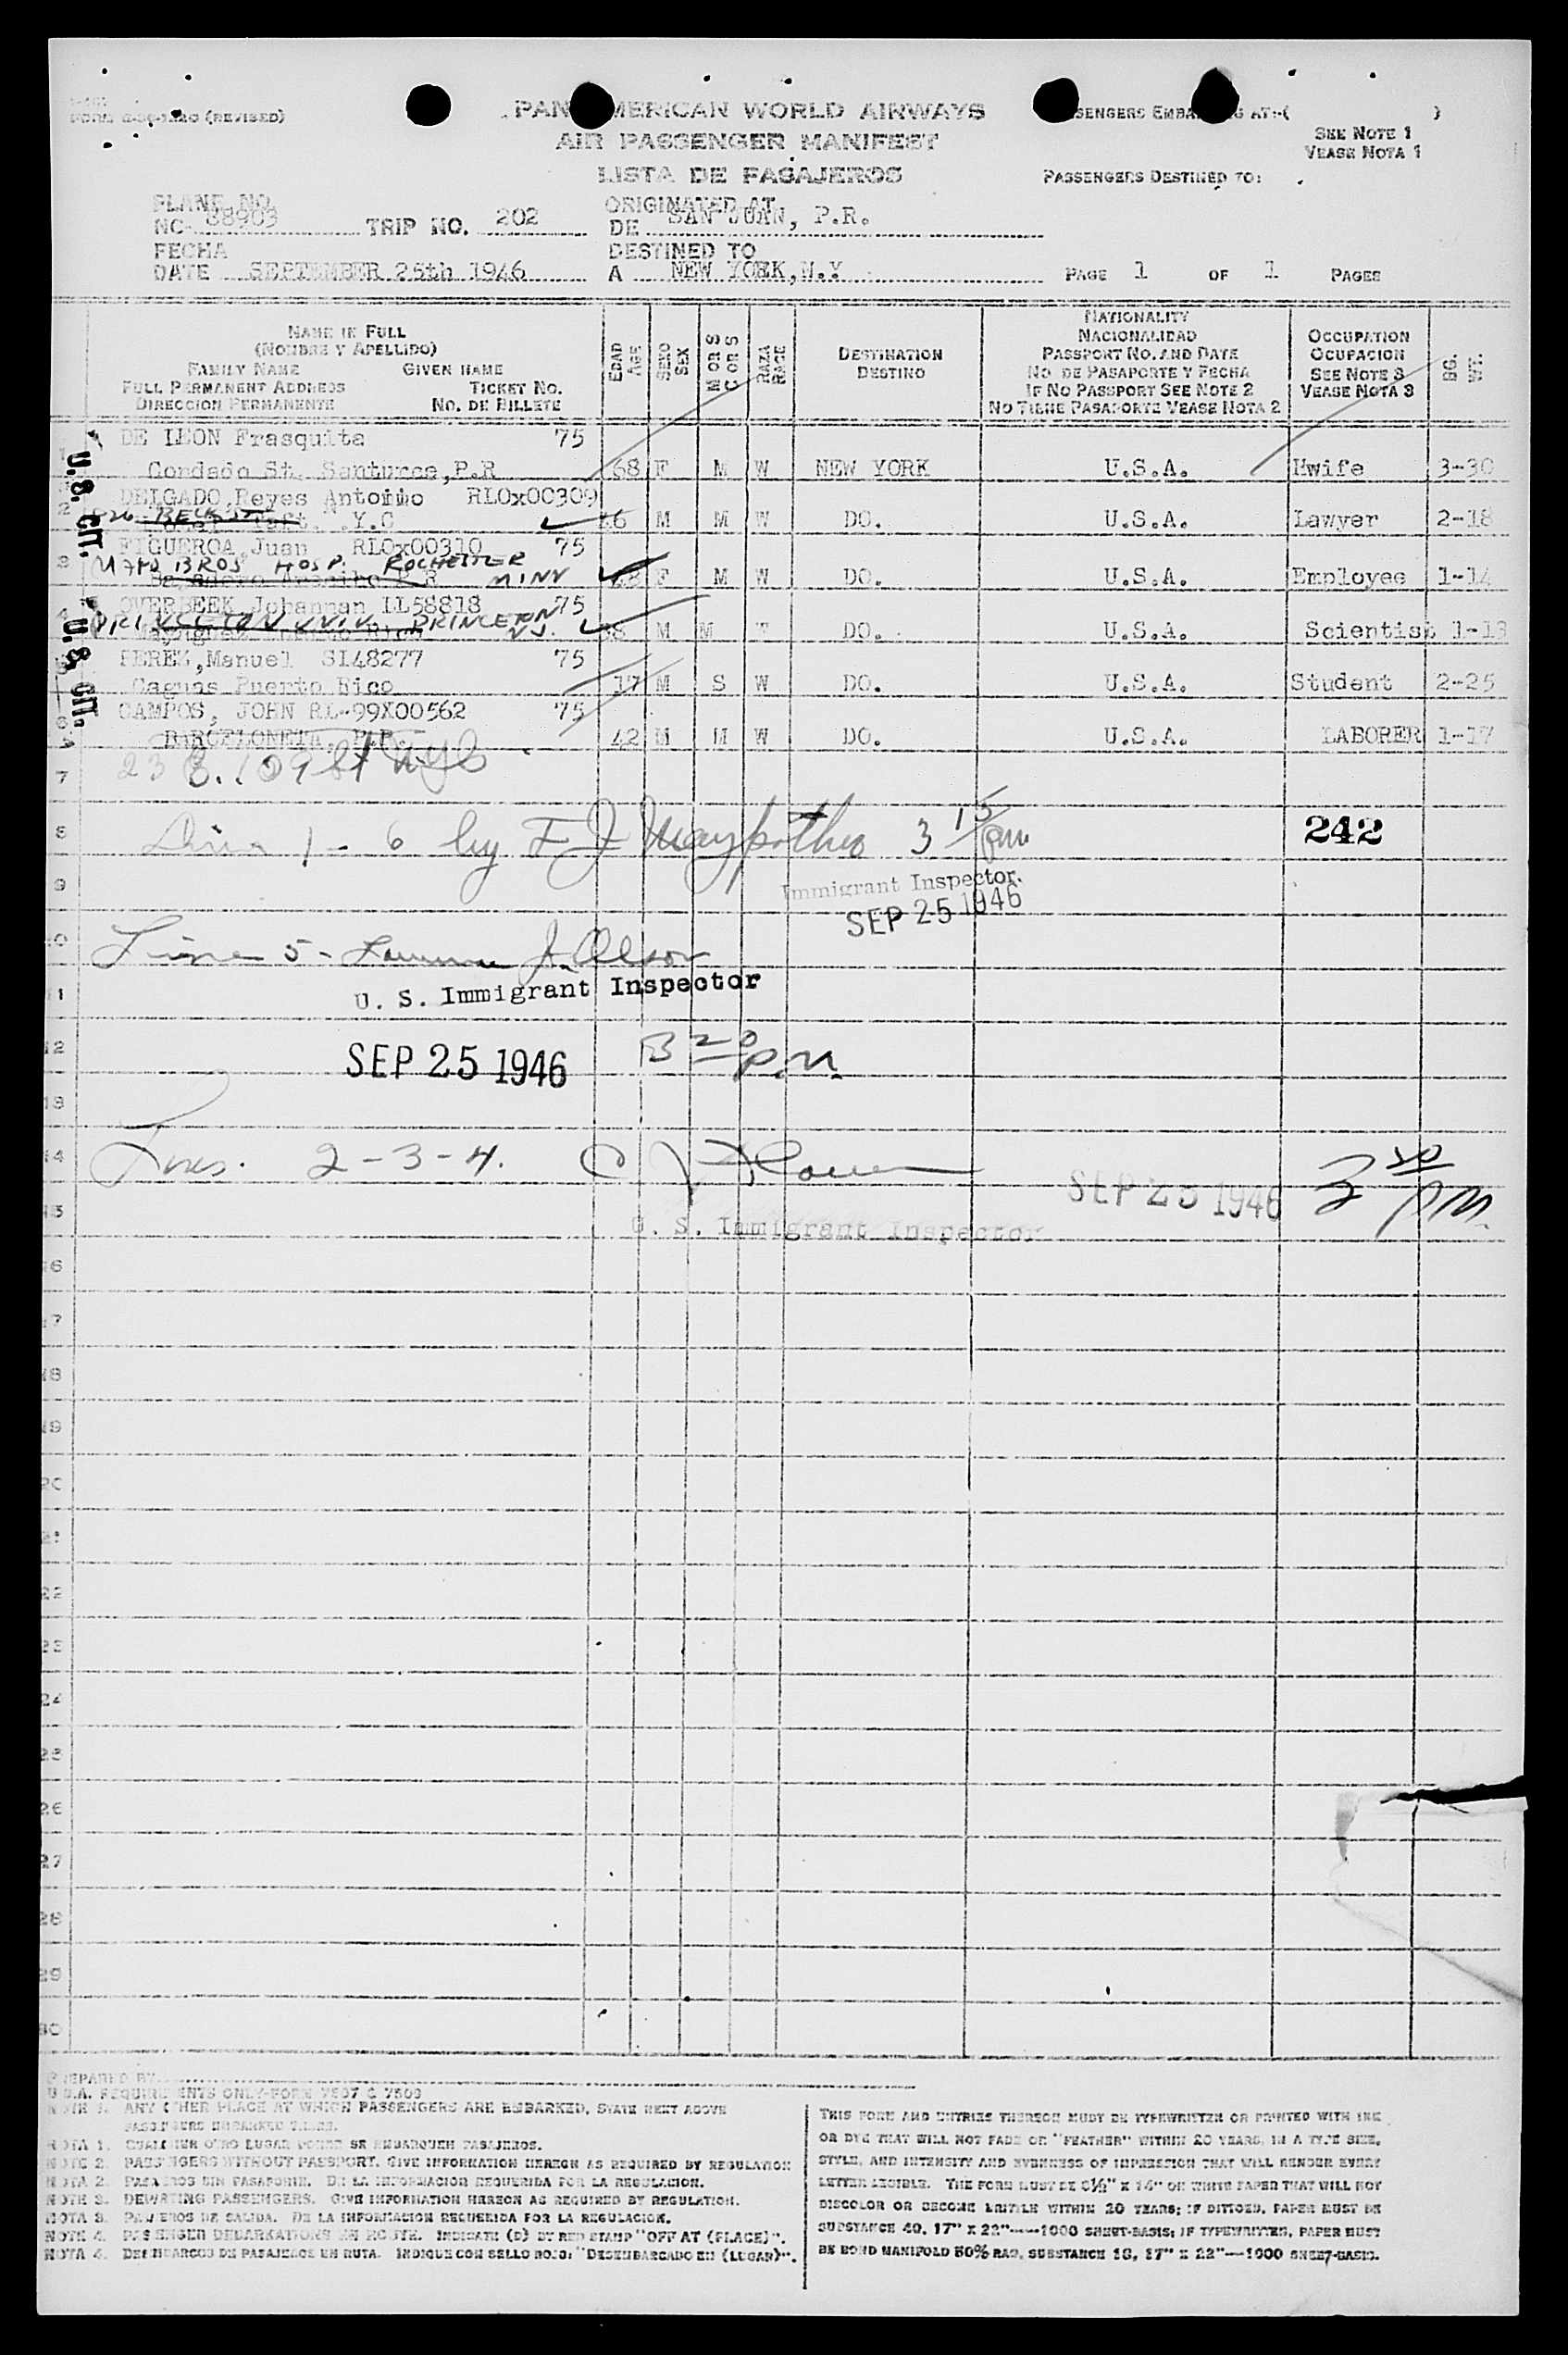 FORM (REVISED)
PAN AMERICAN WORLD AIRWAYS
AIR PASSENGER MANIFEST
LISTA DE PASAJEROS
PASSENGERS EMBARKING AT:-( )
SEE NOTE 1
VEASE NOTA 1
PASSENGERS DESTINED TO:
PLANE NO.
NC- 88903 TRIP NO. 202
ORIGINATED AT
DE SAN JUAN, P.R.
FECHA
DATE SEPTEMBER 25th 1946
DESTINED TO
A NEW YORK, N.Y
PAGE 1 OF 1 PAGES
NAME IN FULL
(NOMBRE Y APELLIDO)
FAMILY NAME GIVEN NAME
FULL PERMANENT ADDRESS TICKET NO.
DIRECCION PERMANENTE NO. DE BILLETE
EDAD AGE
SEXO SEX
M OR S C OR S
RAZA RACE
DESTINATION DESTINO
NATIONALITY
NACIONALIDAD
PASSPORT NO. AND DATE
NO. DE PASAPORTE Y FECHA
IF NO PASSPORT SEE NOTE 2
NO TIENE PASAPORTE VEASE NOTA 2
OCCUPATION
OCUPACION
SEE NOTE 3
VEASE NOTA 3
BG. WT.
U.S. CIT.
U.S. CIT.
1 DE LEON Frasquita 75
Condado St. Santurce, P.R 68 F M W NEW YORK U.S.A. Hwife 3-30
2 DELGADO, Reyes Antonio RLOx00309
BECK ST 46 M M W DO. U.S.A. Lawyer 2-18
3 FIGUEROA, Juan RLOx00310 75
MAYO BROS HOSP. ROCHESTER MINN
F M W DO. U.S.A. Employee 1-14
4 OVERBEEK, Johannan LL58818 75
PRINCETON UNIV. PRINCETON N.J.
38 M M W DO. U.S.A. Scientist 1-13
5 PEREZ, Manuel SI48277 75
Caguas Puerto Rico 17 M S W DO. U.S.A. Student 2-25
6 CAMPOS, JOHN RL-99X00562 75
BARCELONETA, P.R. 42 M M W DO. U.S.A. LABORER 1-17
7 23 E. 109 St NYC
8 1 - 6 by F J 3 15/pm
242
Immigrant Inspector.
SEP 25 1946
9
10 Line 5 - J. Olson
11 U. S. Immigrant Inspector
12 SEP 25 1946 3 20 P.M.
13
14 Lines. 2-3-4.
SEP 25 1946 3 50 PM.
15 U. S. Immigrant Inspector
16
17
18
19
20
21
22
23
24
25
26
27
28
29
30
PREPARED BY
U.S.A. REQUIREMENTS ONLY-FORM 7507 & 7509
NOTE 1. ANY OTHER PLACE AT WHICH PASSENGERS ARE EMBARKED, STATE NEXT ABOVE
PASSENGERS EMBARKED THERE.
NOTA 1. CUALQUIER OTRO LUGAR DONDE SE EMBARQUEN PASAJEROS.
NOTE 2. PASSENGERS WITHOUT PASSPORT. GIVE INFORMATION HEREON AS REQUIRED BY REGULATION
NOTA 2. PASAJEROS SIN PASAPORTE. DE LA INFORMACION REQUERIDA POR LA REGULACION.
NOTE 3. DEPARTING PASSENGERS. GIVE INFORMATION HEREON AS REQUIRED BY REGULATION.
NOTA 3. PASAJEROS DE SALIDA. DE LA INFORMACION REQUERIDA POR LA REGULACION.
NOTE 4. PASSENGER DEBARKATIONS EN ROUTE. INDICATE (D) BY RED STAMP "OFF AT (PLACE)".
NOTA 4. DESEMBARCOS DE PASAJEROS EN RUTA. INDIQUE CON SELLO ROJO: "DESEMBARCADO EN (LUGAR)".
THIS FORM AND ENTRIES THEREON MUST BE TYPEWRITTEN OR PRINTED WITH INK
OR DYE THAT WILL NOT FADE OR "FEATHER" WITHIN 20 YEARS; IN A TYPE SIZE,
STYLE, AND INTENSITY AND EVENNESS OF IMPRESSION THAT WILL RENDER EVERY
LETTER LEGIBLE. THE FORM MUST BE 8½" X 14" ON WHITE PAPER THAT WILL NOT
DISCOLOR OR BECOME BRITTLE WITHIN 20 YEARS; IF DITTOED, PAPER MUST BE
SUBSTANCE 40, 17" X 22"----1000 SHEET-BASIS; IF TYPEWRITTEN, PAPER MUST
BE BOND MANIFOLD 50% RAG, SUBSTANCE 16, 17" X 22"—1000 SHEET-BASIS.